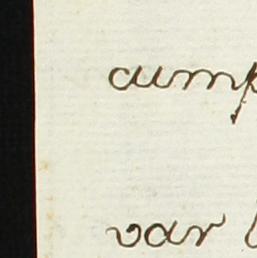 cump
var